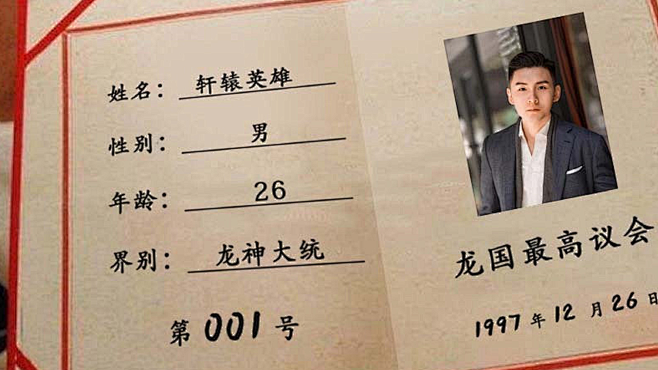 姓名： 轩辕英雄
性别： 男
年龄： 26
界别： 龙神大统
第 001 号
龙国最高议会
1997 年 12 月 26 日